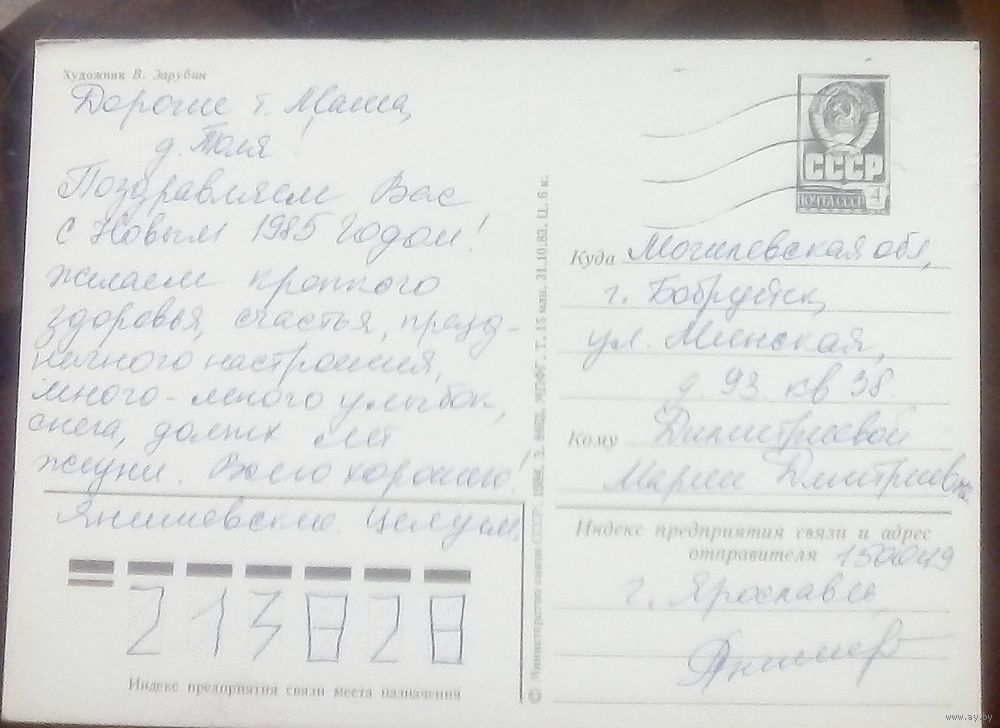 Художник В. Зарубин
Дорогие т. Маша,
д. Толя!
Поздравляем Вас
с Новым 1985 годом!
желаем крепкого
здоровья, счастья, празд-
ничного настроения,
много-много улыбок,
снега, долгих лет
жизни. Всего хорошего!
Янишевские. Целуем.
213828
Индекс предприятия связи места назначения
© Министерство связи СССР. 1984. З. МПФГ. Т. 15 млн. 31.10.83. Ц. 6 к.
СССР
ПОЧТА СССР 4
Куда Могилевская обл,
г. Бобруйск,
ул. Минская,
д. 93. кв 38.
Кому Димитриевой
Марии Дмитриевне
Индекс предприятия связи и адрес
отправителя 150049
г. Ярославль
www.ay.by